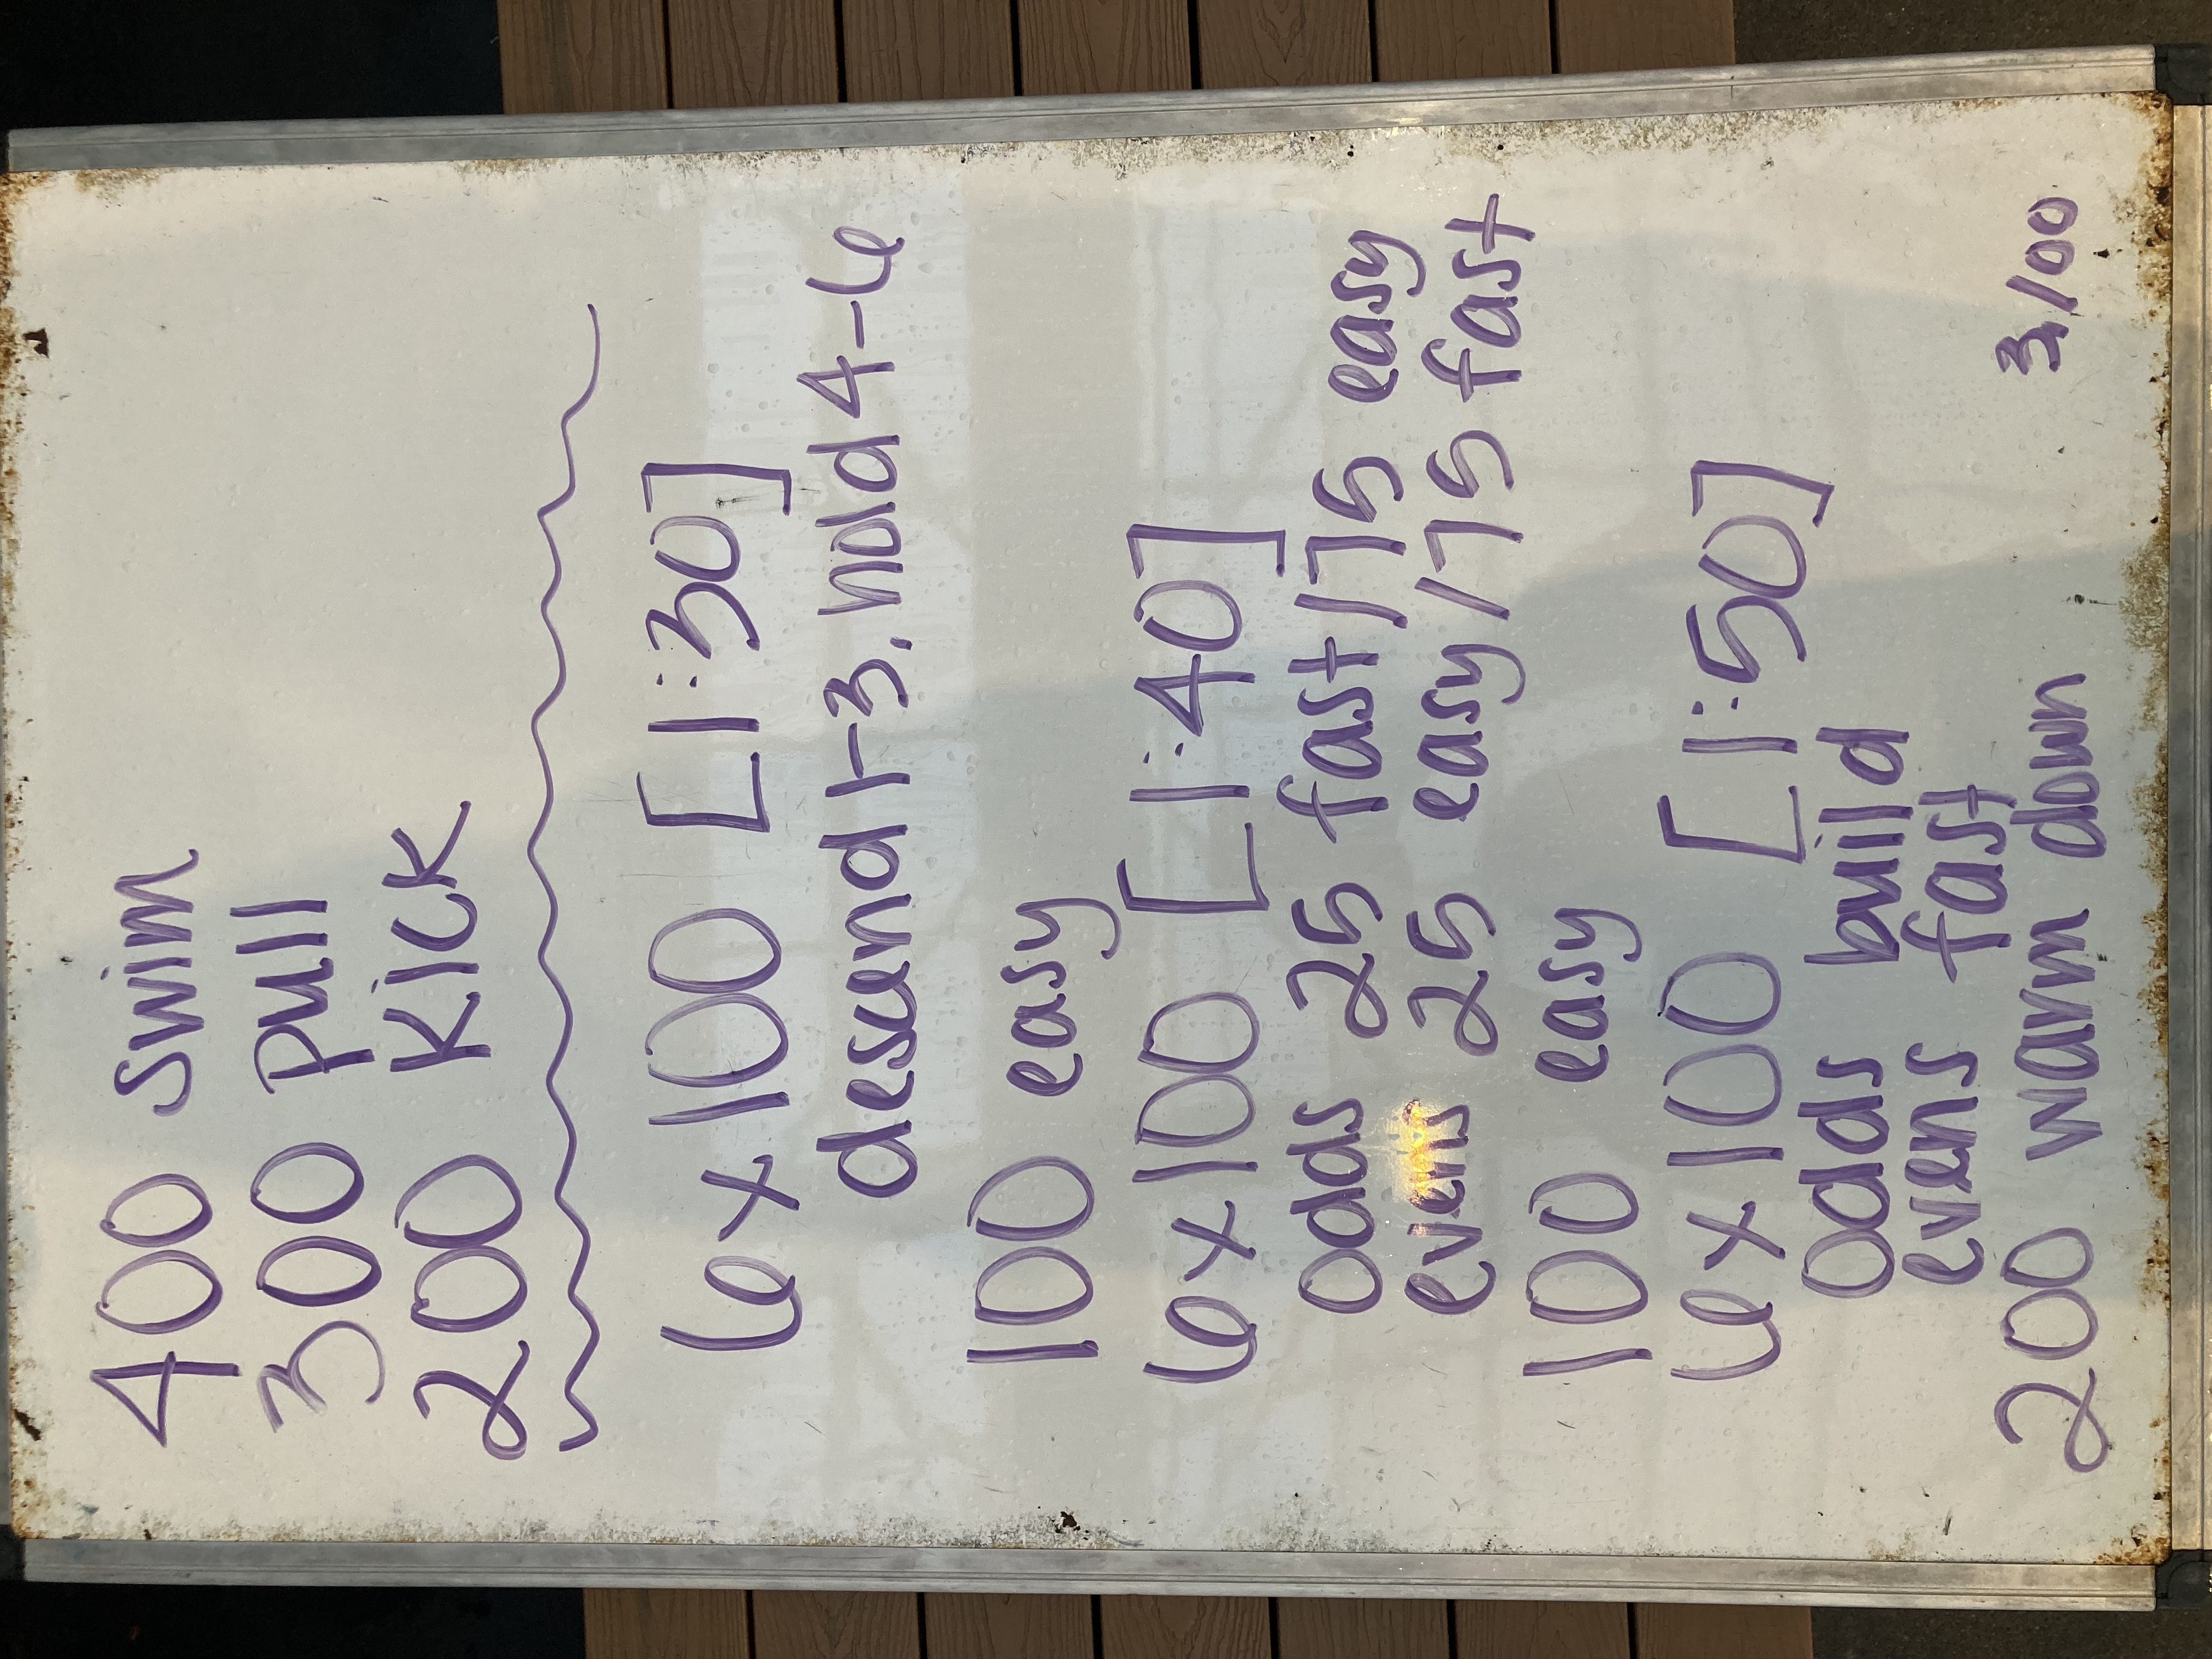 400 swim
300 pull
200 kick
6x100 [1:30]
descend 1-3. hold 4-6
100 easy
6x100 [1:40]
odds 25 fast/75 easy
evens 25 easy/75 fast
100 easy
6x100 [1:50]
odds build
evens fast
200 warm down
3,100